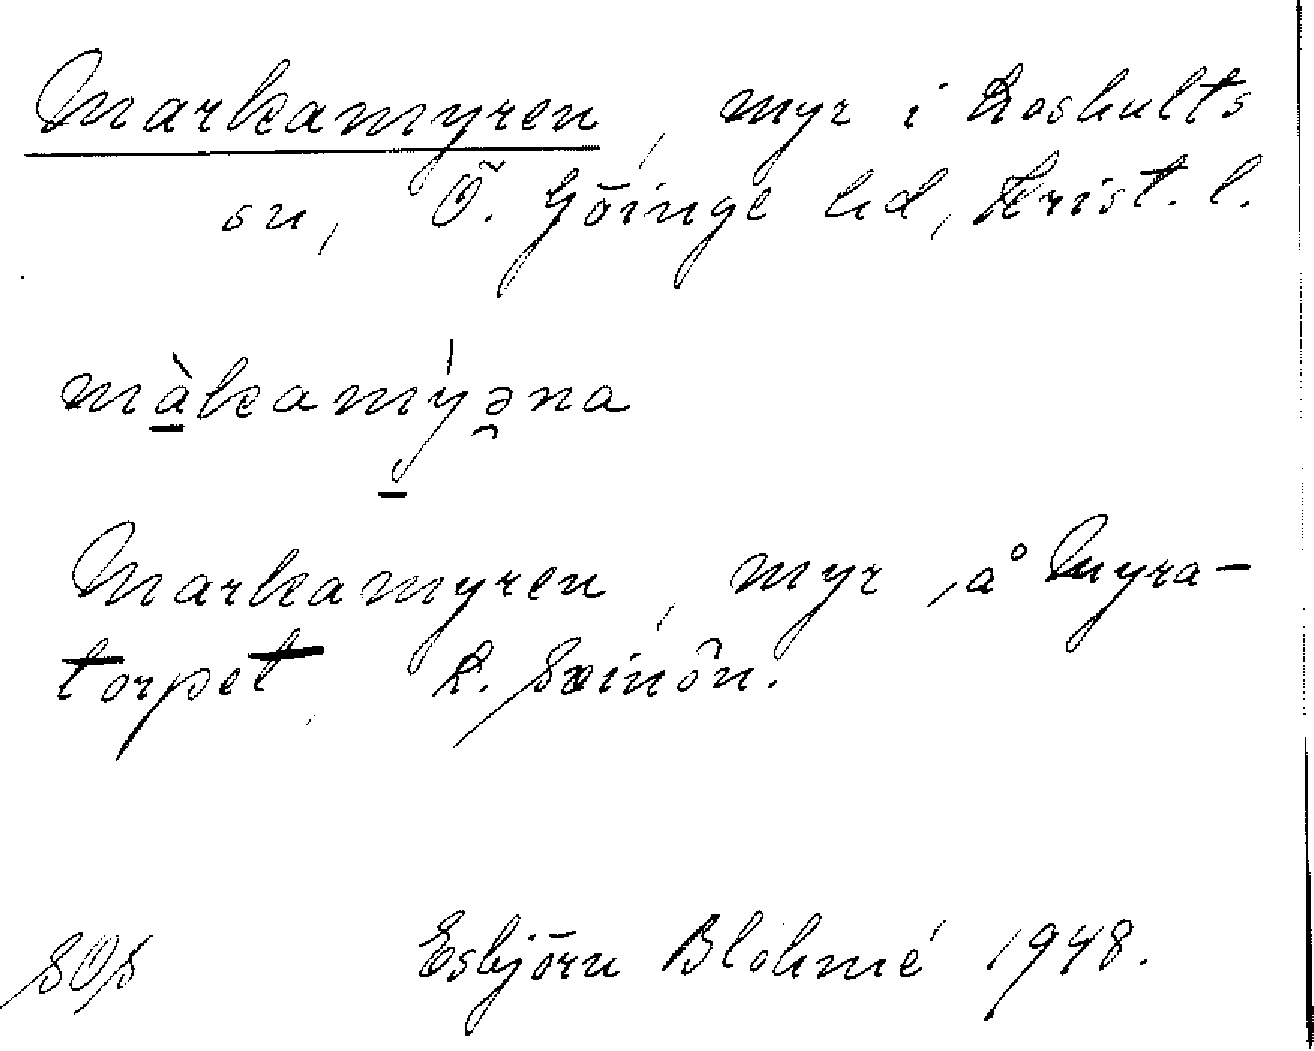 Markamyren, myr i Loshults
sn, Ö. Göinge hd, Krist. l.
màkamýəna
Markamyren, myr å Myra-
torpet. L.
Esbjörn Blohmé 1948.